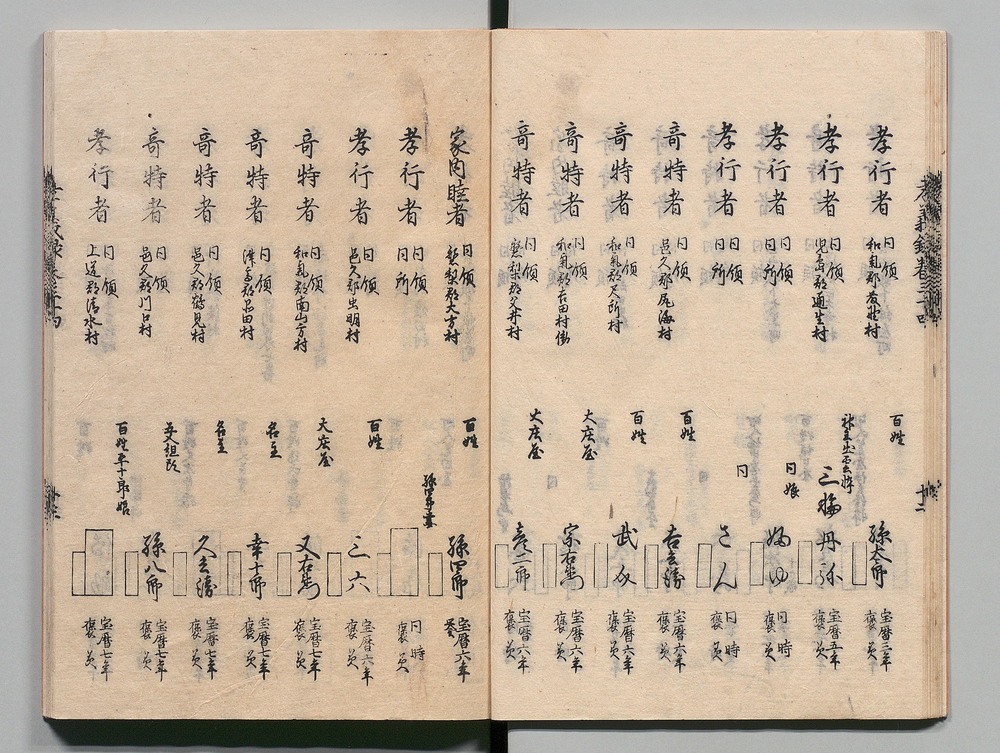 孝行者 同領 和気郡 村 百姓 孫太郎 宝暦三年 褒美
孝行者 同領 児島郡通生村 三輪丹弥 宝暦五年 褒美
孝行者 同領 同所 同娘 ゆ 同時 褒美
孝行者 同領 同所 同 さん 同時 褒美
奇特者 同領 邑久郡尾海村 百姓 吉五郎 宝暦六年 褒美
奇特者 同領 和気郡 所村 百姓 武 宝暦六年 褒美
奇特者 同領 和気郡吉田村 大庄屋 宗右衛門 宝暦六年 褒美
奇特者 同領 磐梨郡 井村 大庄屋 彦一郎 宝暦六年 褒美
家内睦者 同領 磐梨郡大方村 百姓 孫四郎 宝暦六年 褒美
孝行者 同領 同所 孫四郎妻 同時 褒美
孝行者 同領 邑久郡虫明村 百姓 三六 宝暦六年 褒美
奇特者 同領 和気郡南山方村 大庄屋 又右衛門 宝暦七年 褒美
奇特者 同領 津高郡 田村 名主 幸十郎 宝暦七年 褒美
奇特者 同領 邑久郡鶴見村 名主 宝暦七年 褒美
奇特者 同領 邑久郡川口村 五人組頭 孫八郎 宝暦七年 褒美
孝行者 同領 上道郡清水村 百姓平十郎娘 宝暦七年 褒美